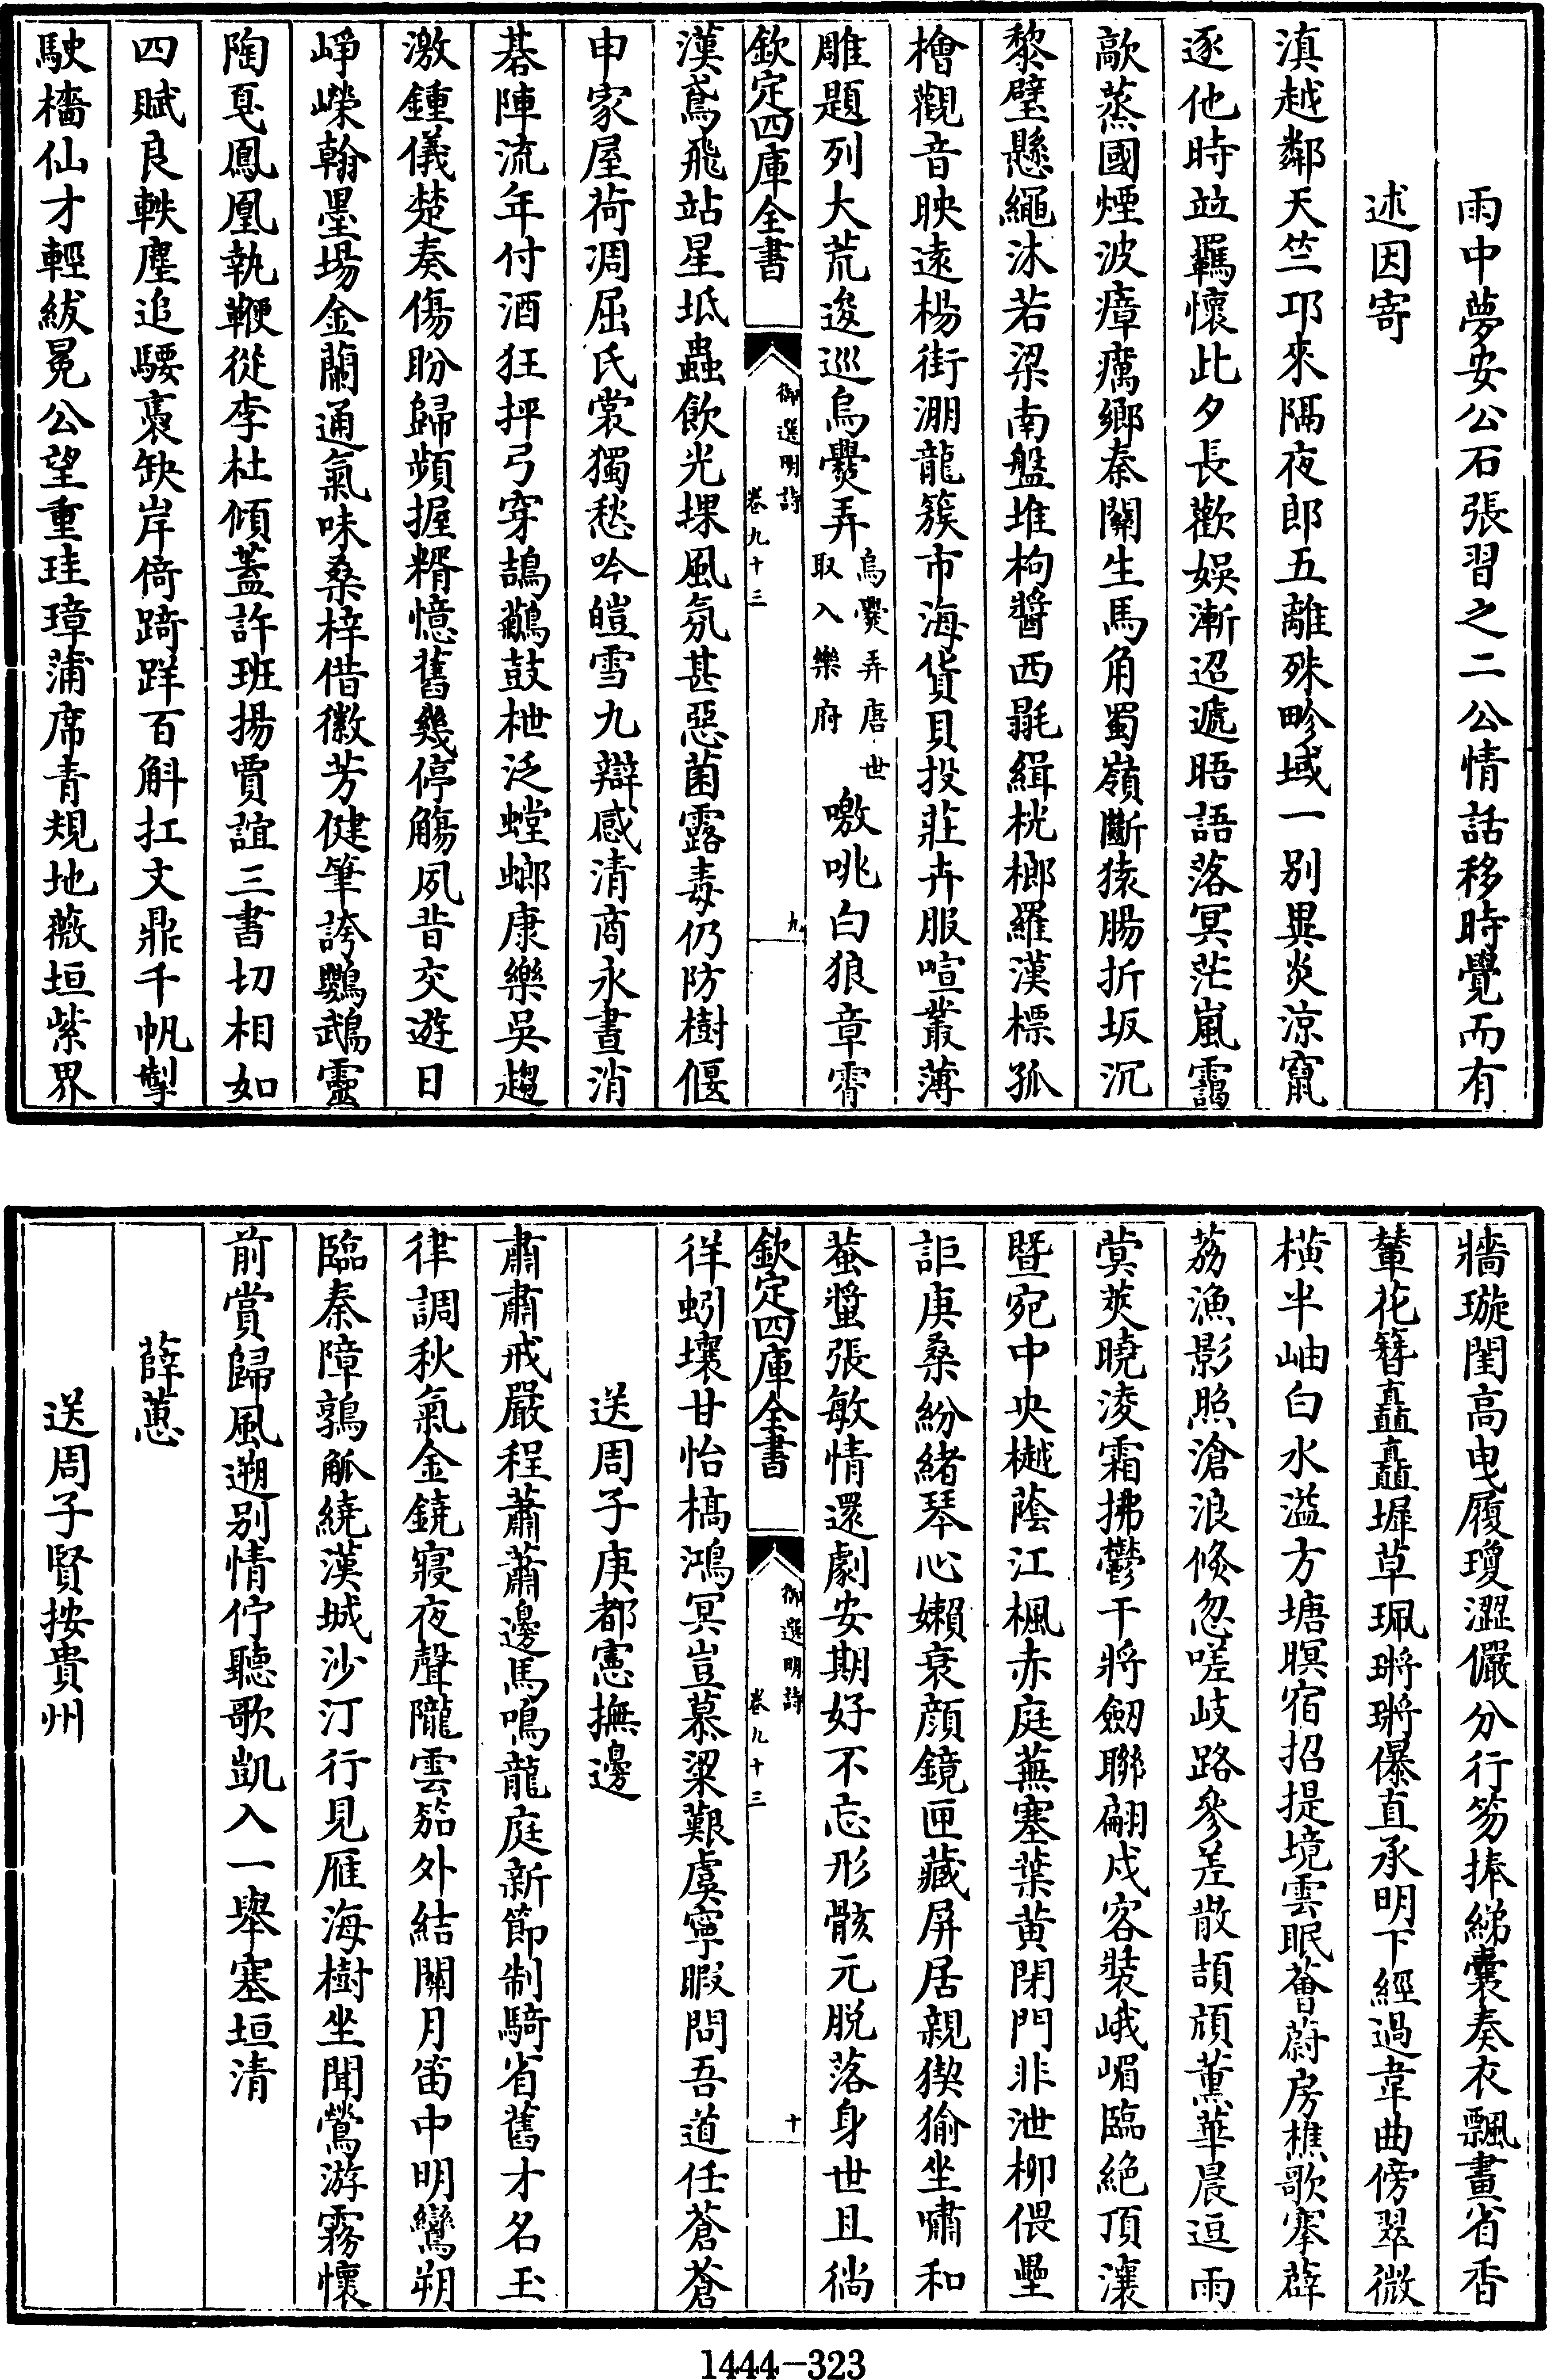 雨中夢安公石張習之二公情話移時覺而有
述因寄
滇越鄰天竺邛來隔夜郎五離殊畛域一別異炎涼竄
逐他時竝羈懷此夕長歡娛漸迢遞晤語落冥茫嵐靄
歊蒸國煙波瘴癘鄉秦關生馬角蜀嶺斷猿腸折坂沉
黎壁懸繩沐若梁南盤堆枸醬西毾緝桄榔羅漢標孤
檜觀音映遠楊街淜龍簇市海貨貝投莊卉服喧叢薄
雕題列大荒逡巡烏爨弄烏爨弄唐世取入樂府噭咷白狼章霄
欽定四庫全書
御選明詩
卷九十三
九
漢鳶飛站星坻蟲飲光堁風氛甚惡菌露毒仍防樹偃
申家屋荷凋屈氏裳獨愁吟皚雪九辯感清商永晝消
棊陣流年付酒狂抨弓穿鵠鸖鼓枻泛螳螂康樂吳趨
激鍾儀楚奏傷盼歸頻握糈憶舊幾停觴夙昔交遊日
崢嶸翰墨場金蘭通氣味桑梓借徽芳健筆誇鸚鵡靈
陶戛鳳凰執鞭從李杜傾蓋許班揚賈誼三書切相如
四賦良軼塵追騕褭缺岸倚踦跘百斛扛文鼎千帆掣
駛檣仙才輕紱冕公望重珪璋蒲席青規地薇垣紫界
牆璇閨高曳履瓊澀儼分行笏捧綈囊奏衣飄畫省香
輦花簪矗矗墀草珮琳琳瀑直承明下經過韋曲傍翠微
橫半岫白水溢方塘暝宿招提境雲眠薈蔚房樵歌搴薜
荔漁影照滄浪倏忽嗟岐路參差散頡頏薰華晨逗雨
蓂莢曉淩霜拂鬱干將劒聯翩戍客裝峨嵋臨絕頂瀼
曁宛中央樾蔭江楓赤庭蕪塞葉黃閉門非泄柳偎壘
詎庚桑紛緒琴心嬾衰顔鏡匣藏屏居親猰㺄坐嘯和
蛬螿張敏情還劇安期好不忘形骸元脫落身世且徜
欽定四庫全書
御選明詩
卷九十三
十
徉蚓壤甘怡槁鴻冥豈慕粱艱虞寧暇問吾道任蒼蒼
送周子庚都憲撫邊
肅肅戒嚴程蕭蕭邊馬鳴龍庭新節制騎省舊才名玉
律調秋氣金鐃寢夜聲隴雲笳外結關月笛中明鸞朔
臨秦障鶉觚繞漢城沙汀行見雁海樹坐聞鶯游霧懷
前賞歸風遡別情佇聽歌凱入一舉塞垣清
薛蕙
送周子賢按貴州
1444-323